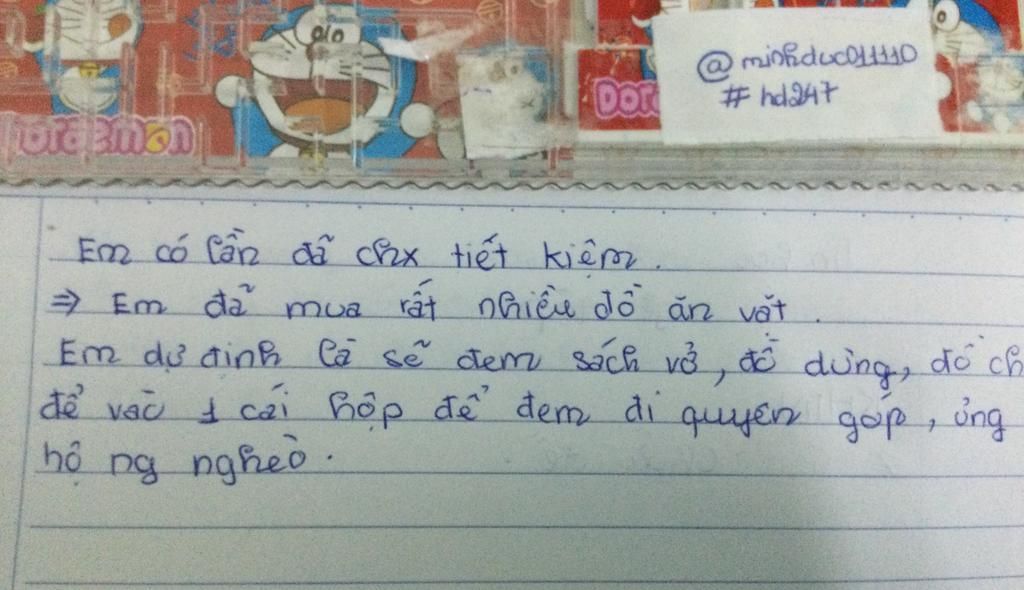 Doraemon
Dor
@minhduc011110
#hd247
Em có lần đã chx tiết kiệm.
⇒ Em đã mua rất nhiều đồ ăn vặt.
Em dự định là sẽ đem sách vở, đồ dùng, đồ ch
để vào 1 cái hộp để đem đi quyên góp, ủng
hộ ng nghèo.